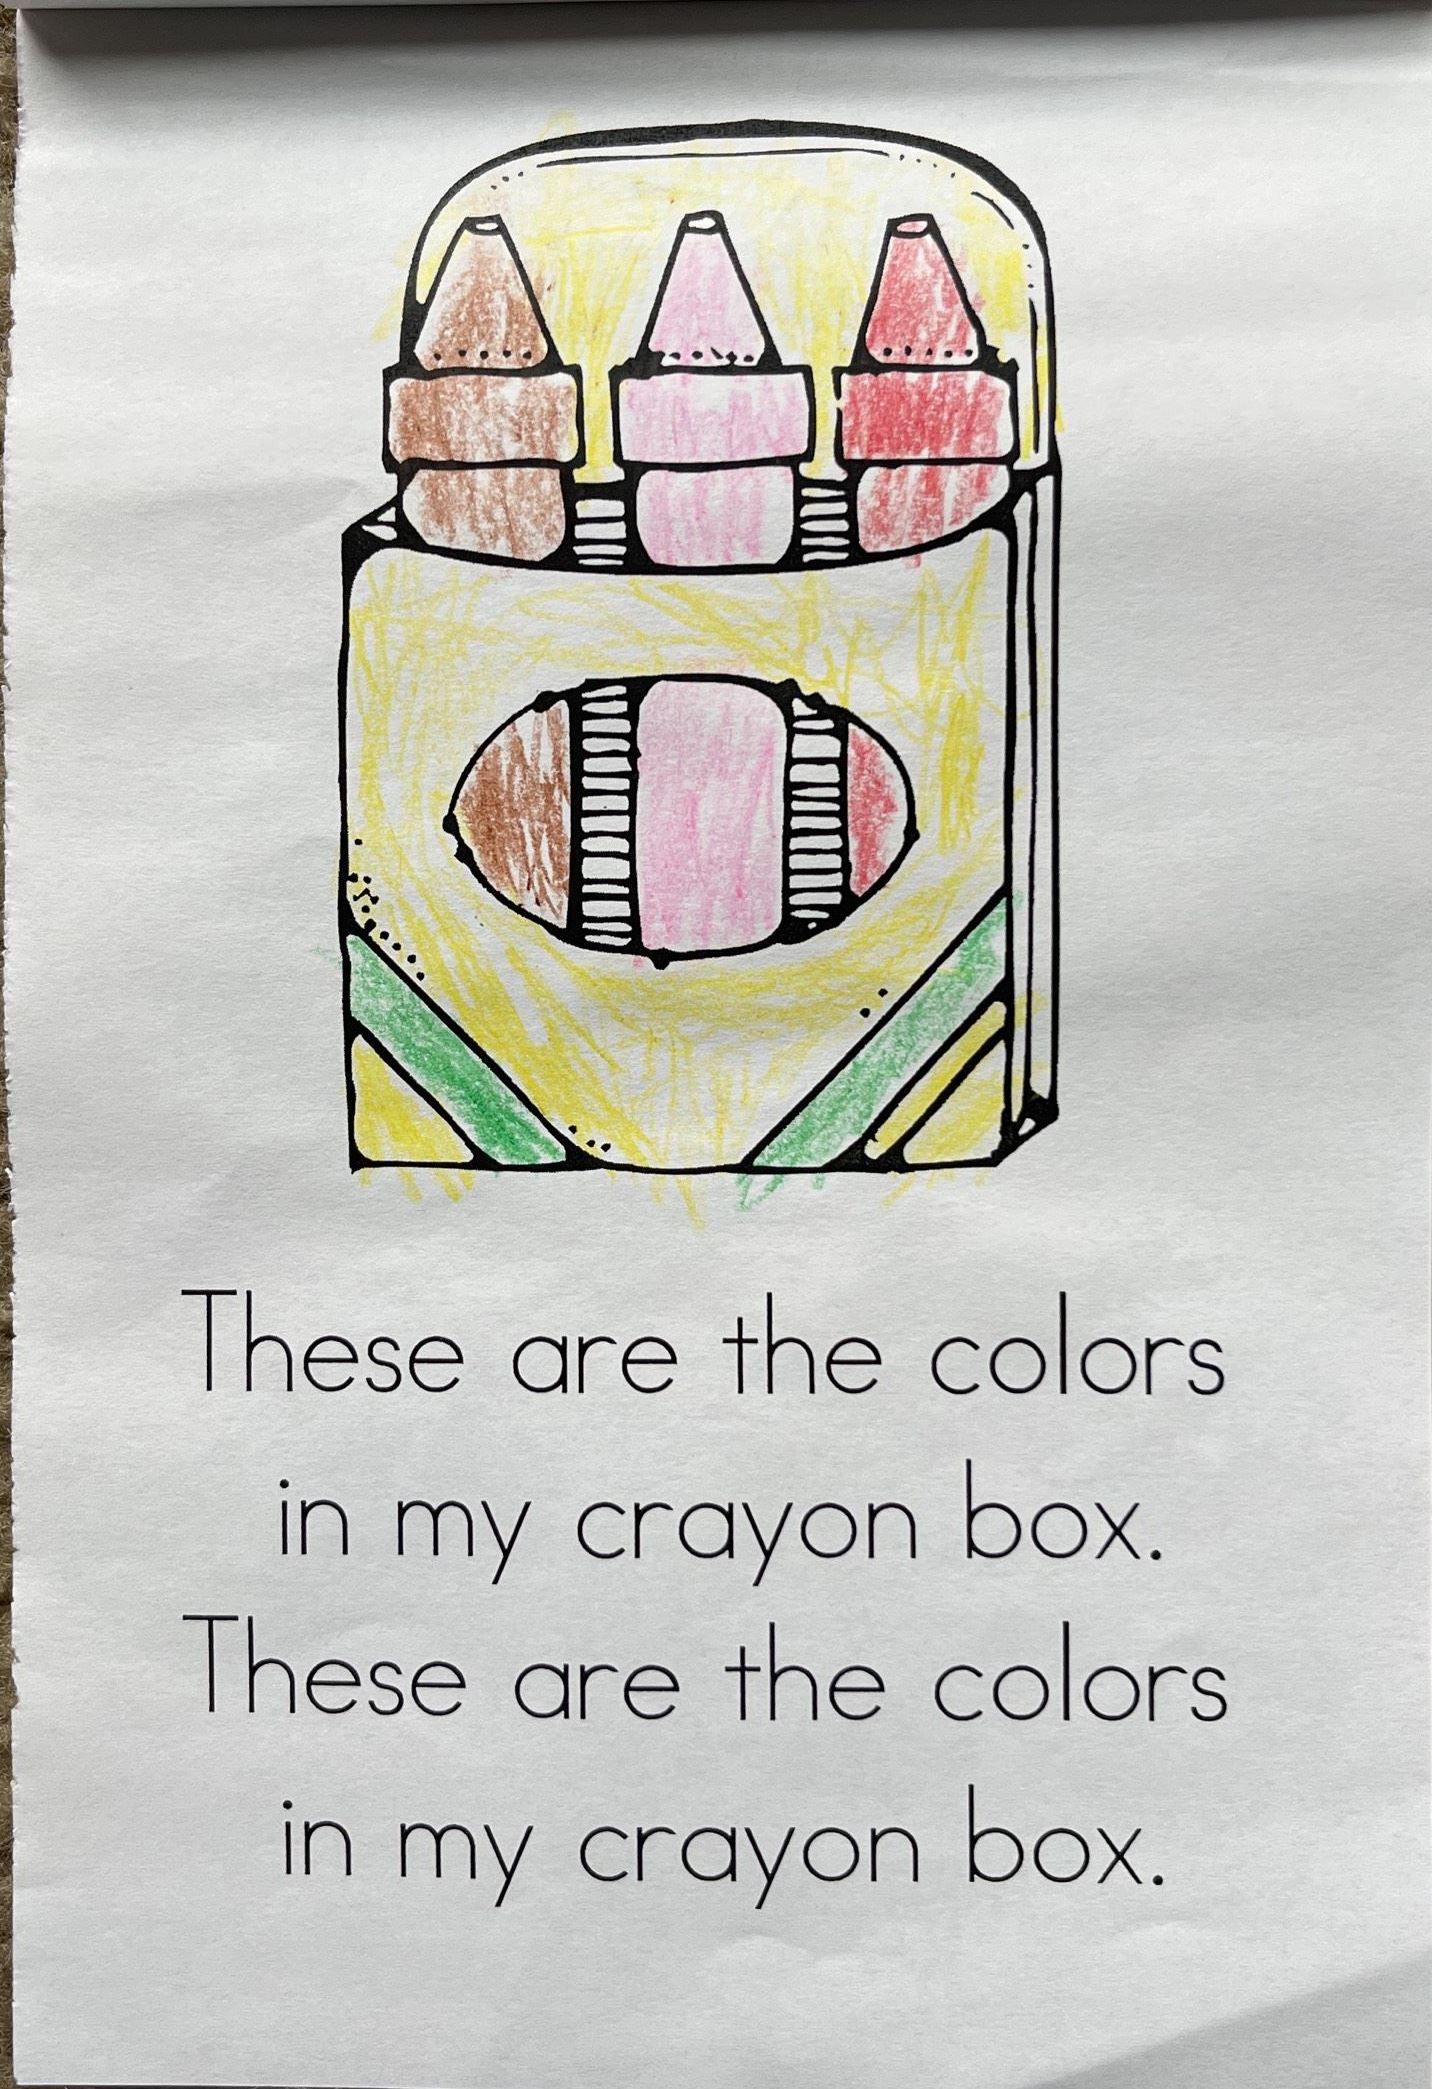 These are the colors
in my crayon box.
These are the colors
in my crayon box.